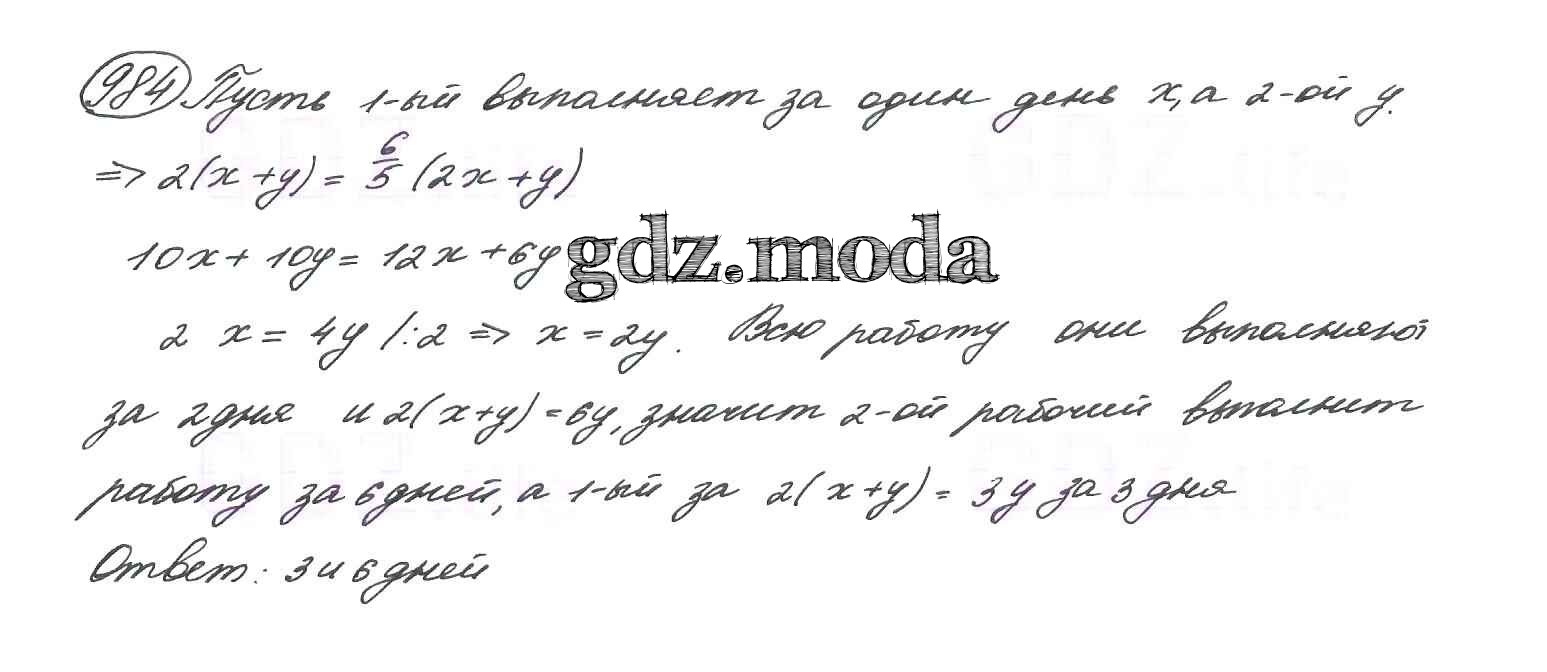 984 Пусть 1-ый выполняет за один день x, а 2-ой y.
=> 2(x+y) = 6/5 (2x+y)
10x + 10y = 12x + 6y
gdz.moda
2 x = 4y /:2 => x = 2y. Всю работу они выполняют
за 2 дня и 2(x+y) = 6y, значит 2-ой рабочий выполнит
работу за 6 дней, а 1-ый за 2(x+y) = 3y за 3 дня
Ответ: 3 и 6 дней